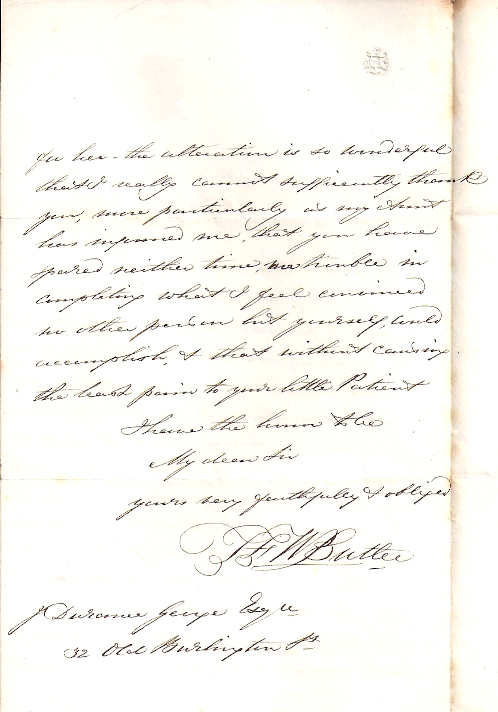 for her - the alteration is so wonderful
that I really cannot sufficiently thank
you, more particularly as my Aunt
has informed me, that you have
spared neither time, nor trouble in
completing what I feel convinced
no other person but yourself, could
accomplish, & that without causing
the least pain to your little Patient
I have the honor to be
My dear Sir
yours very faithfully & obliged
F W Butler
J Durance George Esqre
32 Old Burlington St